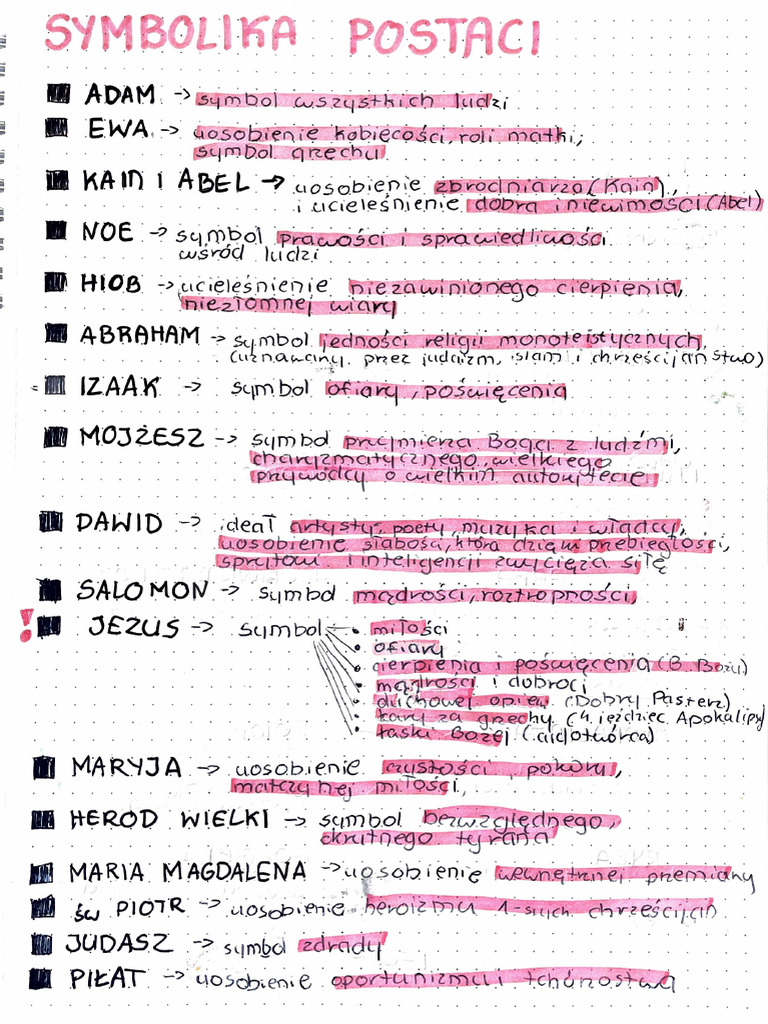 SYMBOLIKA POSTACI
ADAM -> symbol wszystkich ludzi
EWA -> uosobienie kobiecości, roli matki,
symbol grzechu
KAIN I ABEL -> uosobienie zbrodniarza (Kain),
i ucieleśnienie dobra i niewinności (Abel)
NOE -> symbol prawości i sprawiedliwości
wśród ludzi
HIOB -> ucieleśnienie niezawinionego cierpienia,
niezłomnej wiary
ABRAHAM -> symbol jedności religii monoteistycznych,
(uznawany przez judaizm, islam i chrześcijaństwo)
IZAAK -> symbol ofiary, poświęcenia
MOJŻESZ -> symbol przymierza Boga z ludźmi,
charyzmatycznego, wielkiego
przywódcy o wielkim autorytecie
DAWID -> ideał artysty, poety, muzyka i władcy,
uosobienie słabości, która dzięki przebiegłości,
sprytowi i inteligencji zwycięża siłę
SALOMON -> symbol mądrości, roztropności,
! JEZUS -> symbol • miłości
• ofiary
• cierpienia i poświęcenia (B. Boży)
• mądrości i dobroci
• duchowej opieki (Dobry Pasterz)
• kary za grzechy (4 jeździec Apokalipsy)
• łaski Bożej (cudotwórca)
MARYJA -> uosobienie czystości, pokory,
matczynej miłości,
HEROD WIELKI -> symbol bezwzględnego,
okrutnego tyrana
MARIA MAGDALENA -> uosobienie wewnętrznej przemiany
św PIOTR -> uosobienie heroizmu 1-szych chrześcijan
JUDASZ -> symbol zdrady
PIŁAT -> uosobienie oportunizmu i tchórzostwa